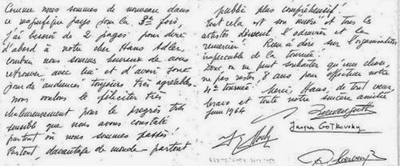 Comme nous sommes de nouveau dans
ce magnifique pays pour la 3ª fois,
J'ai besoin de 2 pages pour dire
d'abord à notre cher Hans Adler,
combien nous sommes heureux de nous
retrouver avec lui et d'avoir
des "audiences" toujours très agréables
nous voulons le féliciter très
chaleureusement pour le progrès très
sensible que nous avons constaté
partout où nous sommes passés!
Partout davantage de monde - partout
public plus compréhensif!
Tout cela est "son mérite" et tous les
artistes doivent l'admirer et le
remercier! Rien à dire sur l'organisation
impeccable de la tournée!
on ne peut souhaiter qu'une chose,
ne pas rester 8 ans pour
4ª tournée! Merci Hans, de tout coeur
bravo et toute notre sincère amitié
Juin 1964
Jacques Gothovsky